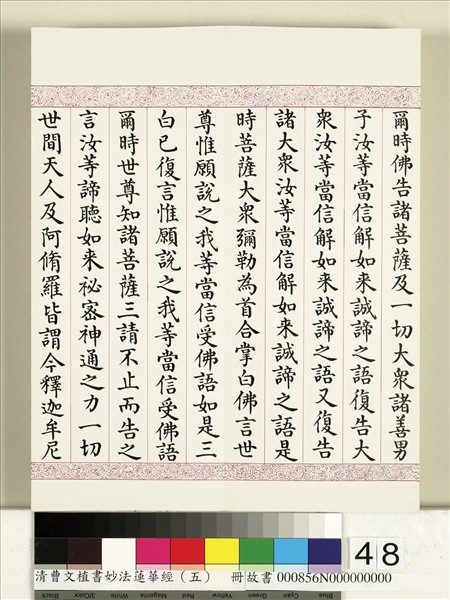 爾時佛告諸菩薩及一切大衆諸善男
子汝等當信解如来誠諦之語復告大
衆汝等當信解如来誠諦之語又復告
諸大衆汝等當信解如来誠諦之語是
時菩薩大衆彌勒為首合掌白佛言世
尊惟願說之我等當信受佛語如是三
白已復言惟願說之我等當信受佛語
爾時世尊知諸菩薩三請不止而告之
言汝等諦聽如来祕密神通之力一切
世間天人及阿脩羅皆謂今釋迦牟尼
48
清曹文植書妙法蓮華經（五） 冊故書 000856N000000000
Black 3/Color White Magenta Red Yellow Green Cyan Blue